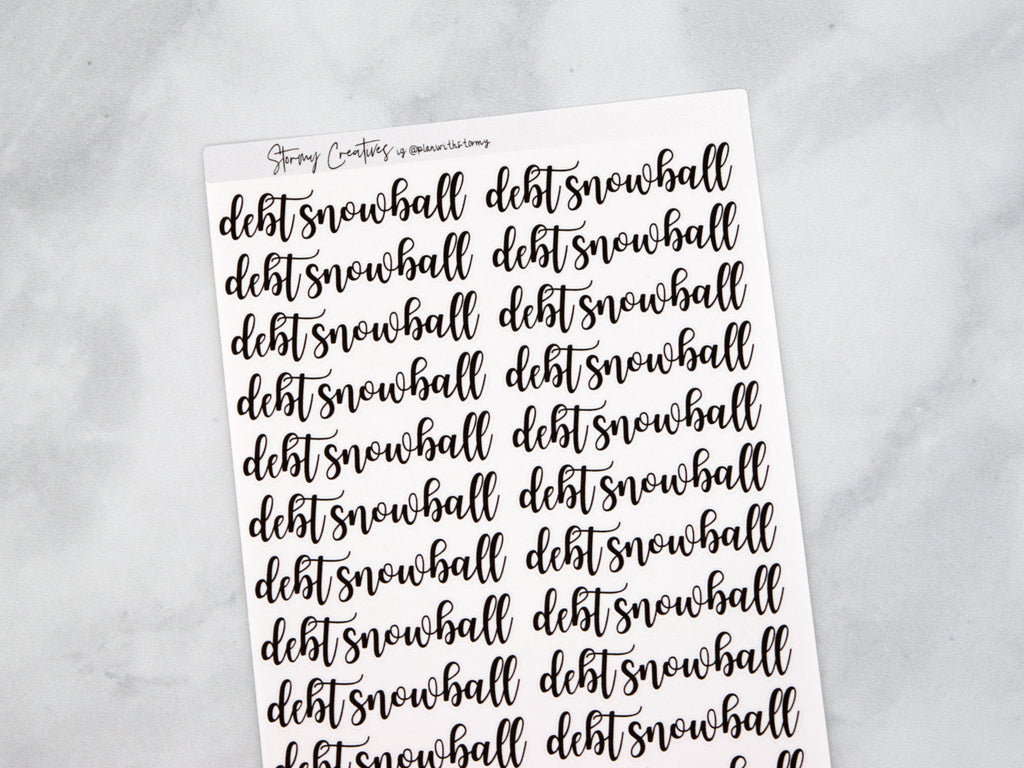 Stormy Creatives ig @planwithstormy
debt snowball debt snowball
debt snowball debt snowball
debt snowball debt snowball
debt snowball debt snowball
debt snowball debt snowball
debt snowball debt snowball
debt snowball debt snowball
debt snowball debt snowball
debt snowball debt snowball
debt snowball debt snowball